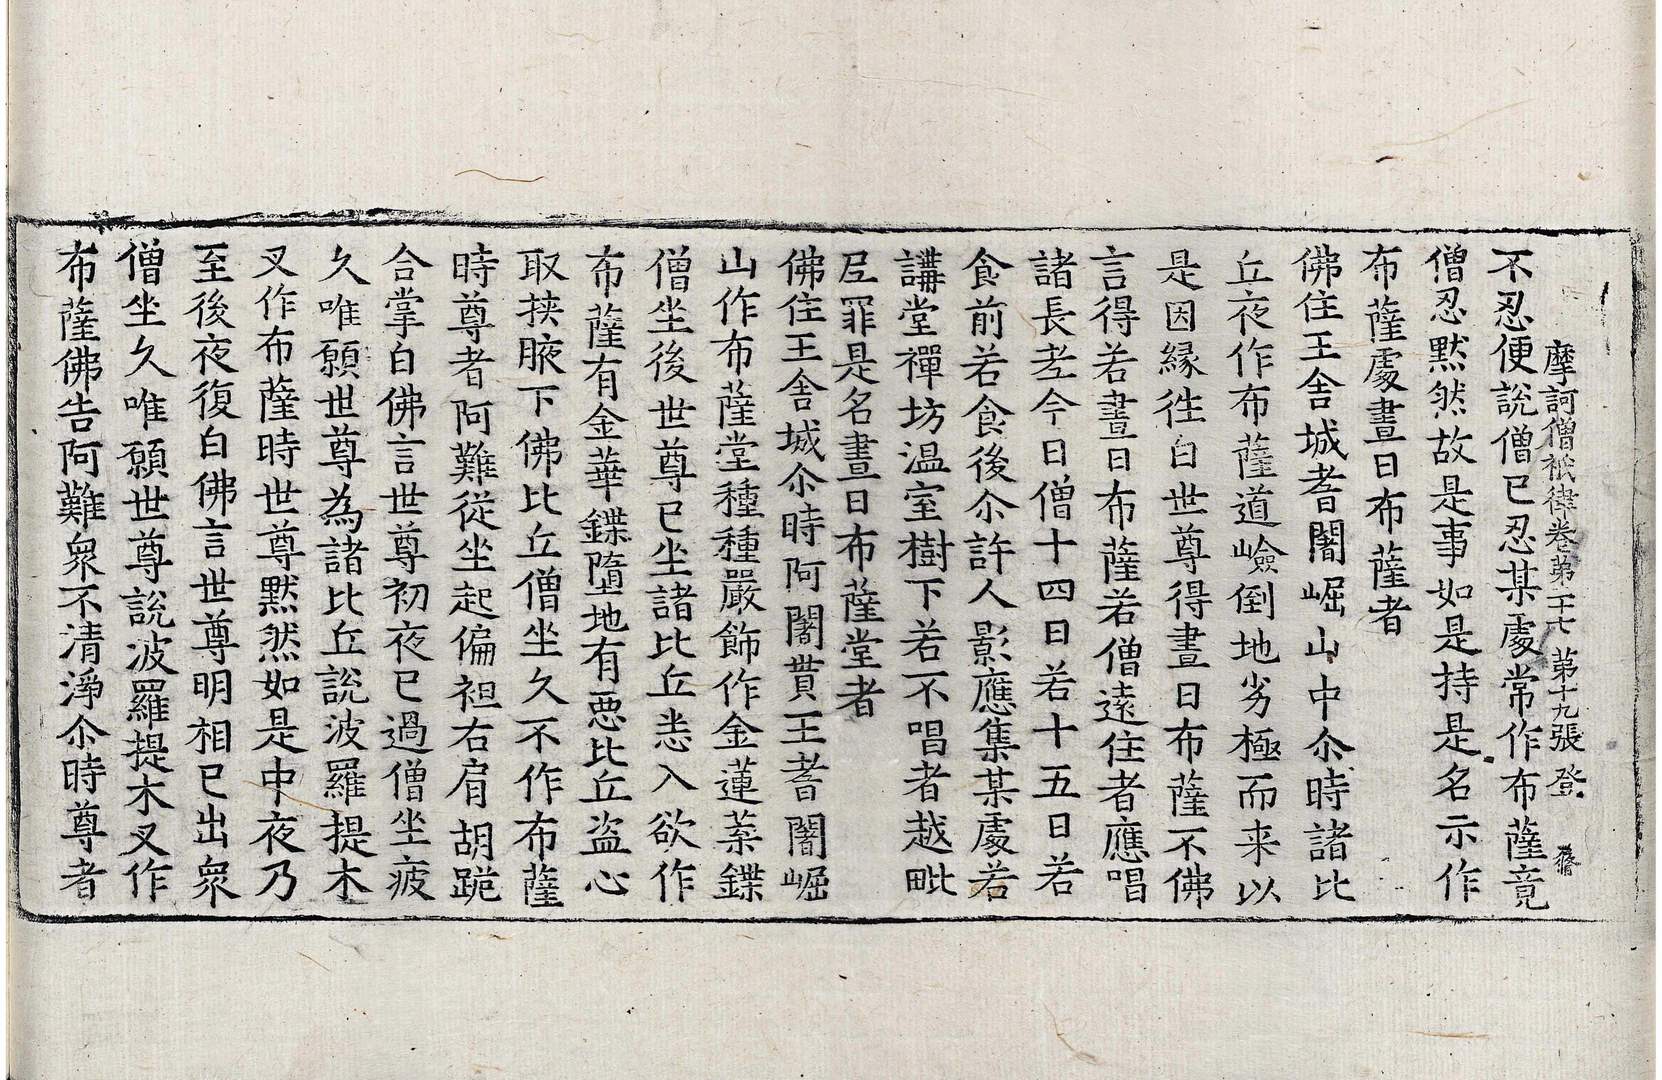 摩訶僧祇律卷第二十七 第十九張 登
不忍便說僧已忍某處常作布薩竟
僧忍黙然故是事如是持是名示作
布薩處晝日布薩者
佛住王舍城耆闍崛山中尒時諸比
丘夜作布薩道嶮倒地劣極而来以
是因緣徃白世尊得晝日布薩不佛
言得若晝日布薩若僧遠住者應唱
諸長老今日僧十四日若十五日若
食前若食後尒許人影應集某處若
講堂禪坊温室樹下若不唱者越毗
尼罪是名晝日布薩堂者
佛住王舍城尒時阿闍貰王耆闍崛
山作布薩堂種種嚴飾作金蓮葉鍱
僧坐後世尊已坐諸比丘悉入欲作
布薩有金華鍱墮地有悪比丘盗心
取挾腋下佛比丘僧坐久不作布薩
時尊者阿難從坐起偏袒右肩胡跪
合掌白佛言世尊初夜已過僧坐疲
久唯願世尊為諸比丘說波羅提木
叉作布薩時世尊黙然如是中夜乃
至後夜復白佛言世尊明相已出衆
僧坐久唯願世尊說波羅提木叉作
布薩佛告阿難衆不清淨尒時尊者